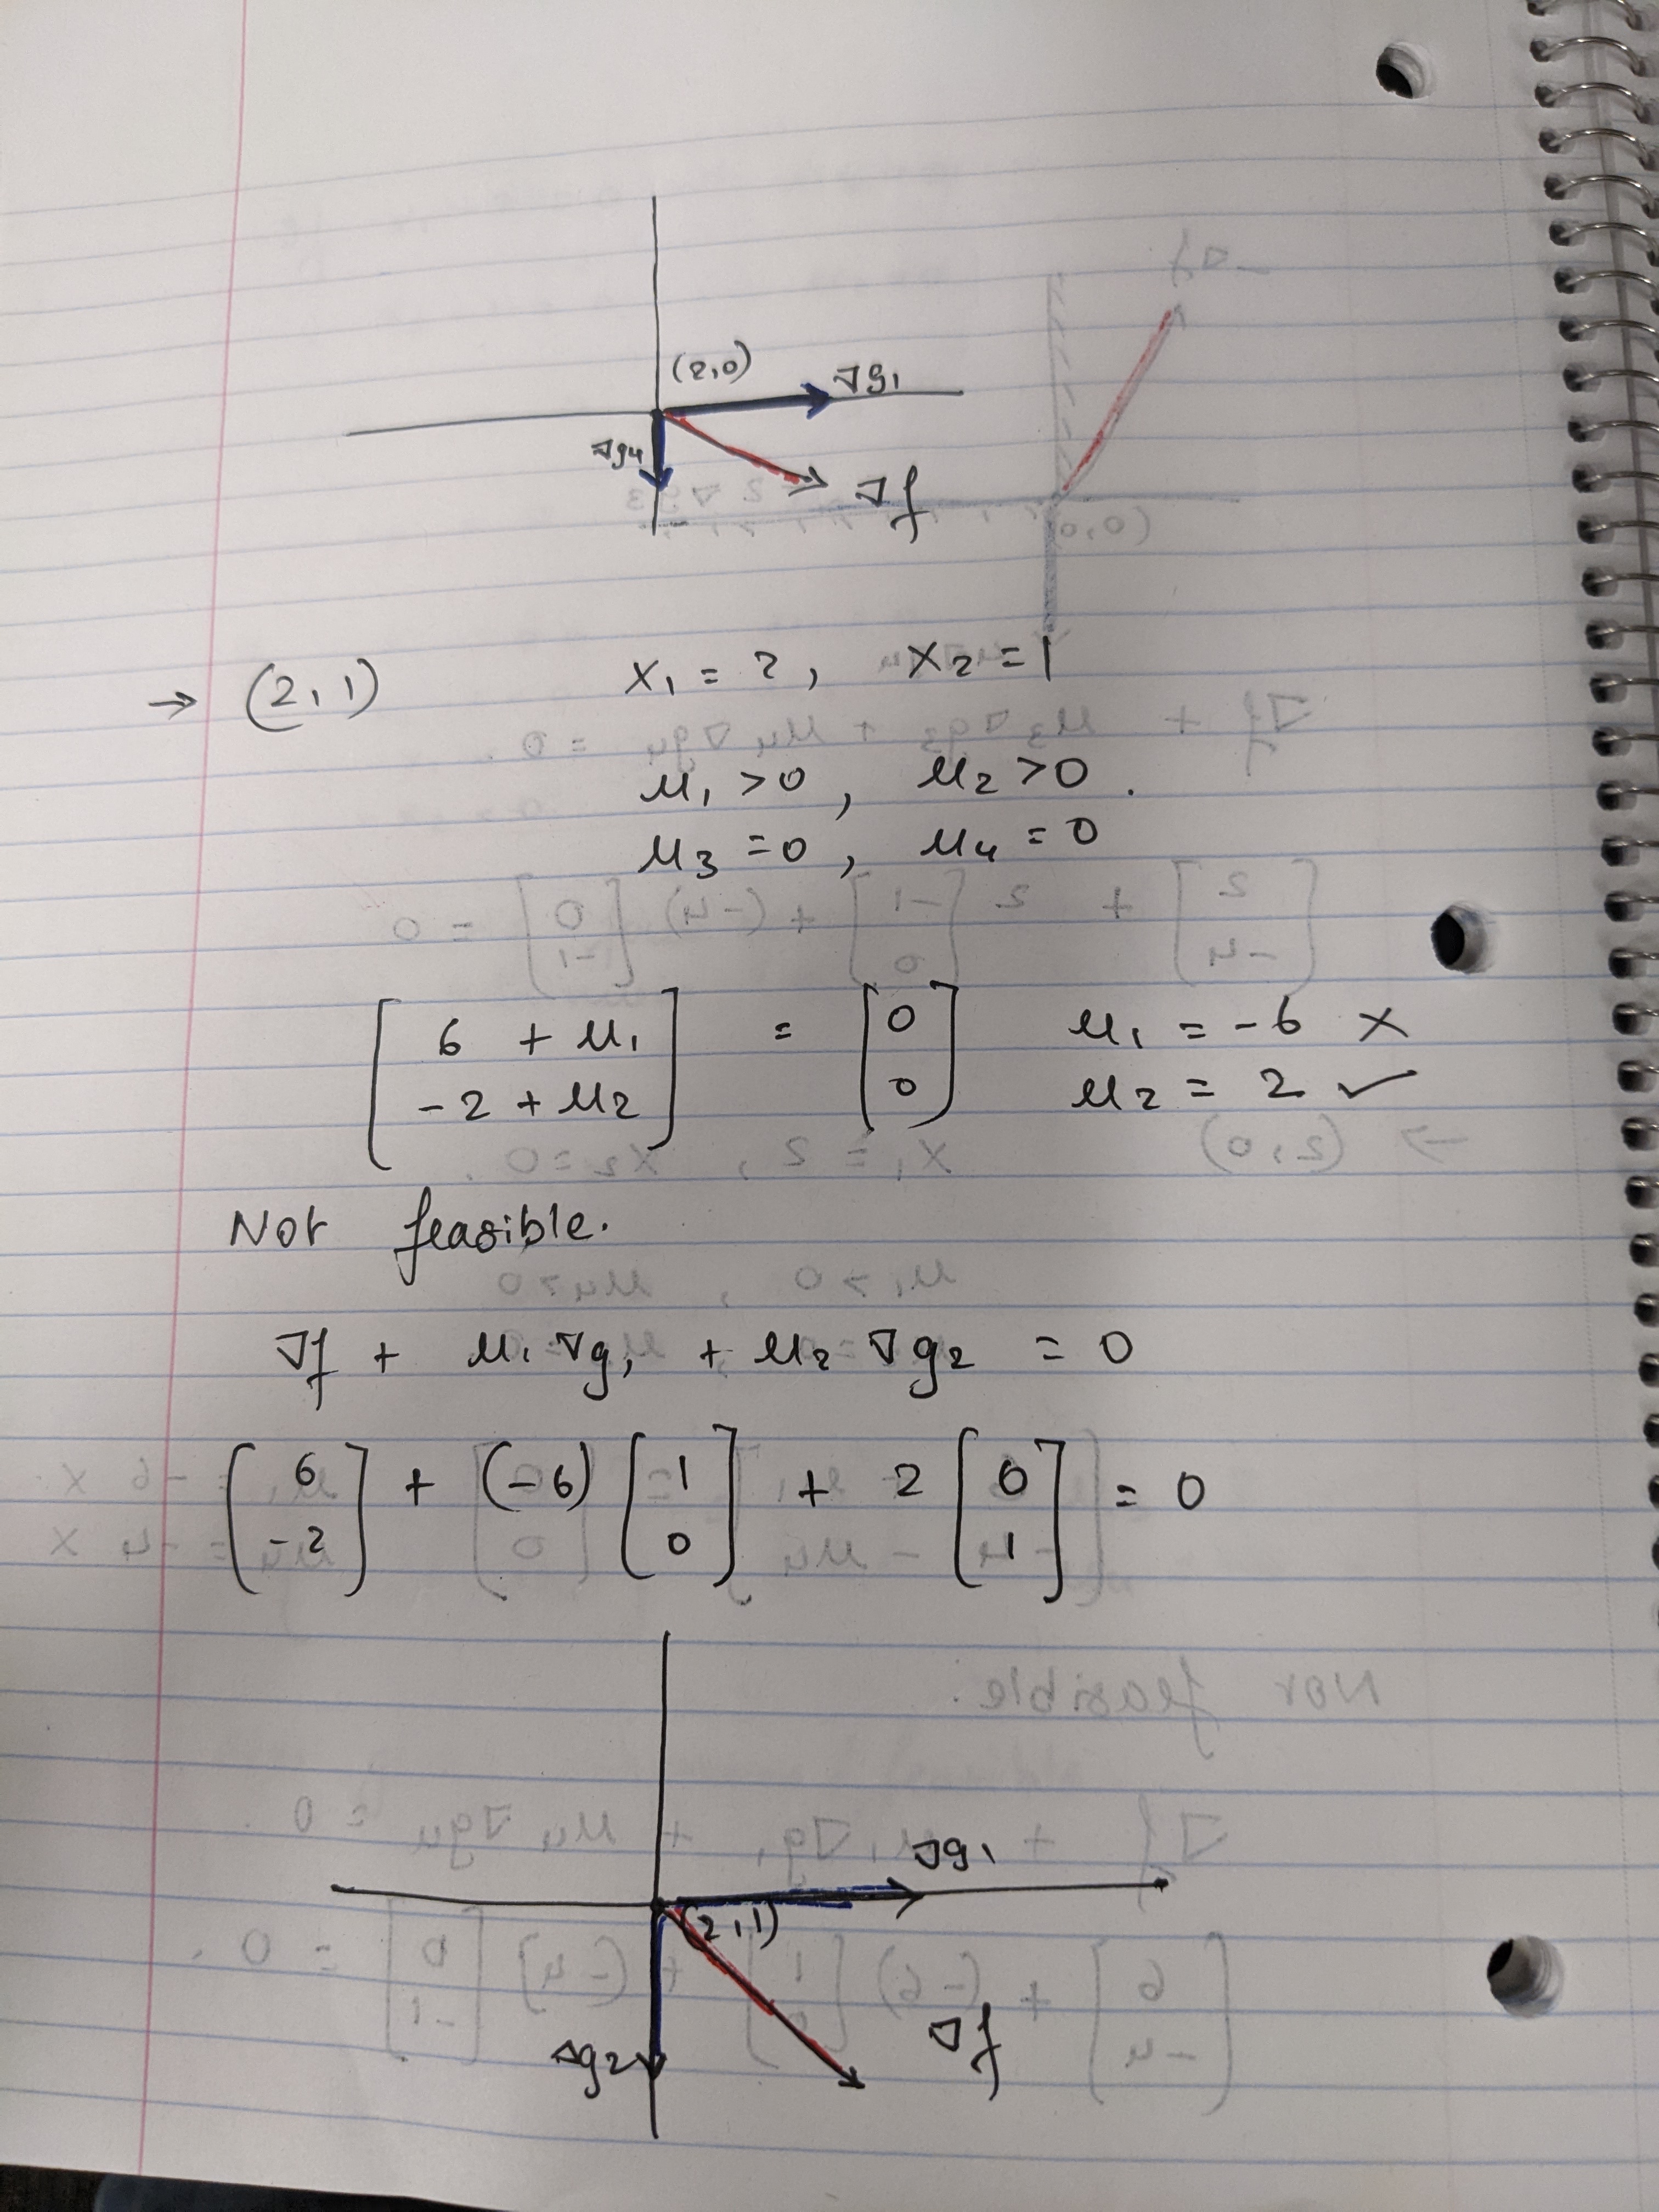 (2,0)
∇g₁
∇g₄
∇f
→ (2,1) x₁ = 2, x₂ = 1
μ₁ > 0, μ₂ > 0.
μ₃ = 0, μ₄ = 0
[6 + μ₁ = [0 μ₁ = -6 ×
-2 + μ₂] 0] μ₂ = 2 ✓
Not feasible.
∇f + μ₁∇g₁ + μ₂ ∇g₂ = 0
[6 -2] + (-6) [1 0] + 2 [0 1] = 0
∇g₁
(2,1)
∇f
∇g₂